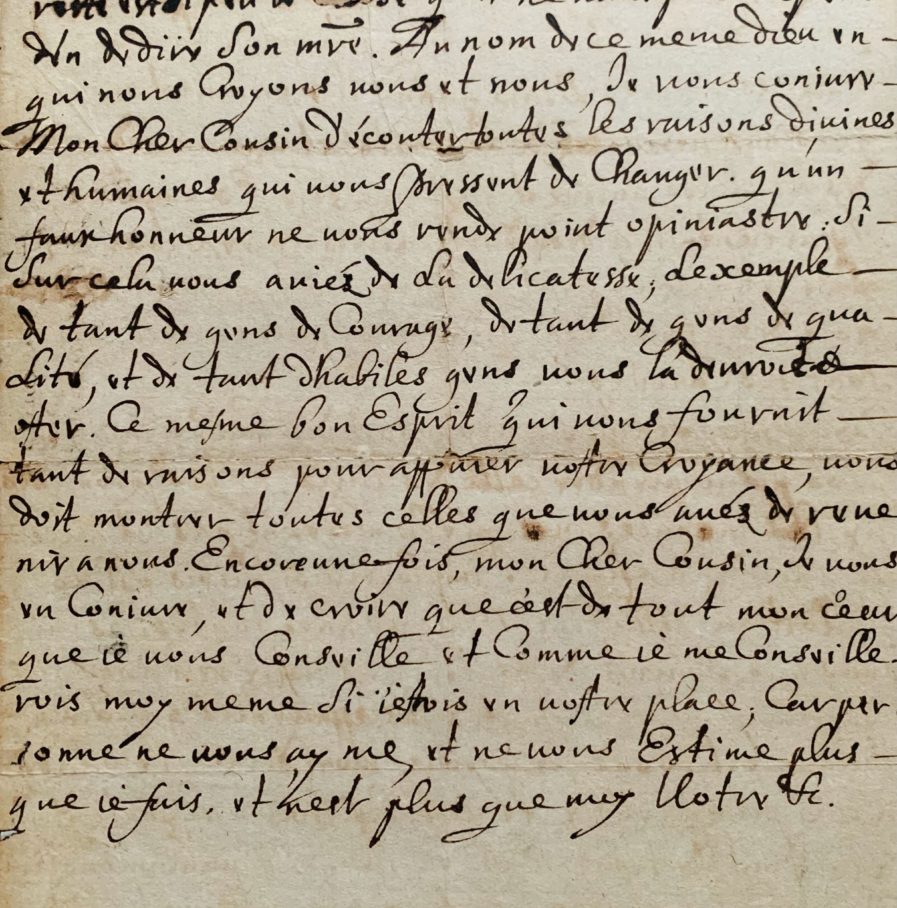 d'en dedire son mre. Au nom de ce meme dieu en-
qui nous Croyons vous et nous, Je vous coniure-
Mon Cher Cousin d'écouter toutes les raisons divines
et humaines qui vous pressent de Changer. qu'un -
faux honneur ne vous rende point opiniastre. Si-
Sur cela vous aviéz de La delicatesse, Lexemple -
de tant de gens de Courage, de tant de gens de qua-
Lité, et de tant d'habiles gens vous la devroit
oster. Ce mesme bon Esprit qui vous fournit -
tant de raisons pour appuier vostre Croyance, vous
doit montrer toutes celles que vous avéz de reve
nir a nous. Encore une fois, mon Cher Cousin, Je vous
en Coniure, et de croire que c'est de tout mon coeur
que ie vous Conseille et Comme ie me Conseille-
rois moy meme Si i'estois en vostre place, Car per
sonne ne vous ayme, et ne vous Estime plus -
que ie fais. et n'est plus que moy Votre &c.